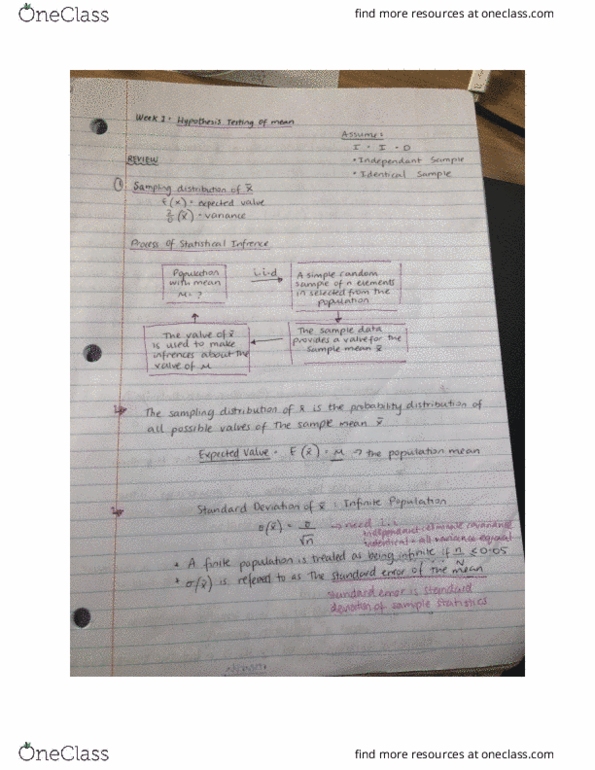 OneClass
find more resources at oneclass.com
Week 1 : Hypothesis Testing of mean
Assume :
I - I - D
• Independant Sample
• Identical Sample
REVIEW
① Sampling distribution of x̄
(x) = expected value
(x̄) = variance
Process of Statistical Infrence
Population with mean M = ?
i.i.d
A simple random sample of n elements in selected from the population
The value of x̄ is used to make infrences about the value of M
The sample data provides a value for the sample mean x̄
The sampling distribution of x̄ is the probability distribution of
all possible values of the sample mean x̄
Expected Value = E(x̄) = M → the population mean
Standard Deviation of x̄ : Infinite Population
σ(x̄) = σ/√n → need i.i
independant: eliminate covariance
identical = all variance equal
• A finite population is treated as being infinite if n/N ≤ 0.05
• σ(x̄) is referred to as the standard error of the mean
standard error is standard
deviation of sample statistics
OneClass
find more resources at oneclass.com